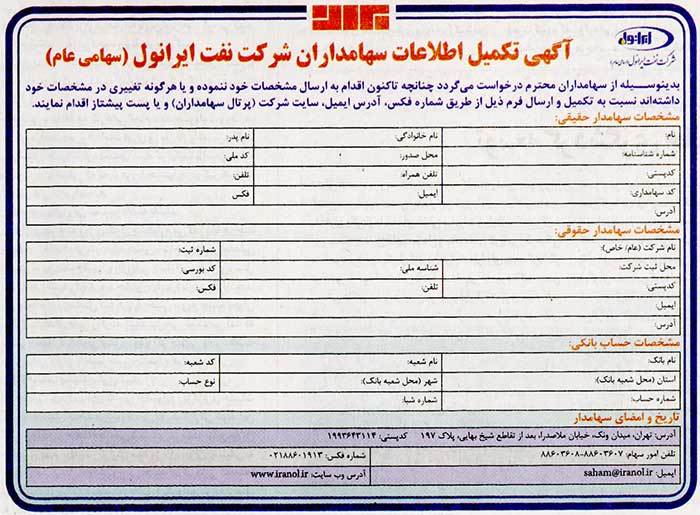 ایرانول
شرکت نفت ایرانول (سهامی عام)
آگهی تکمیل اطلاعات سهامداران شرکت نفت ایرانول (سهامی عام)
بدینوسیله از سهامداران محترم درخواست می‌گردد چنانچه تاکنون اقدام به ارسال مشخصات خود ننموده و یا هرگونه تغییری در مشخصات خود
داشته‌اند نسبت به تکمیل و ارسال فرم ذیل از طریق شماره فکس، آدرس ایمیل، سایت شرکت (پرتال سهامداران) و یا پست پیشتاز اقدام نمایند.
مشخصات سهامدار حقیقی:
نام: نام خانوادگی: نام پدر:
شماره شناسنامه: محل صدور: کد ملی:
کدپستی: تلفن همراه: تلفن:
کد سهامداری: ایمیل: فکس
آدرس:
مشخصات سهامدار حقوقی:
نام شرکت (عام/ خاص): شماره ثبت:
محل ثبت شرکت: شناسه ملی: کد بورسی:
کدپستی: تلفن: فکس:
ایمیل:
آدرس:
مشخصات حساب بانکی:
نام بانک: نام شعبه: کد شعبه:
استان (محل شعبه بانک): شهر (محل شعبه بانک): نوع حساب:
شماره حساب: شماره شبا:
تاریخ و امضای سهامدار
آدرس: تهران، میدان ونک، خیابان ملاصدرا، بعد از تقاطع شیخ بهایی، پلاک ۱۹۷ کدپستی: ۱۹۹۳۶۴۳۱۱۴
تلفن امور سهام: ۸۸۶۰۳۶۰۷-۸۸۶۰۳۶۰۸ شماره فکس: ۰۲۱۸۸۶۰۱۹۱۳
ایمیل: saham@iranol.ir آدرس وب سایت: www.iranol.ir